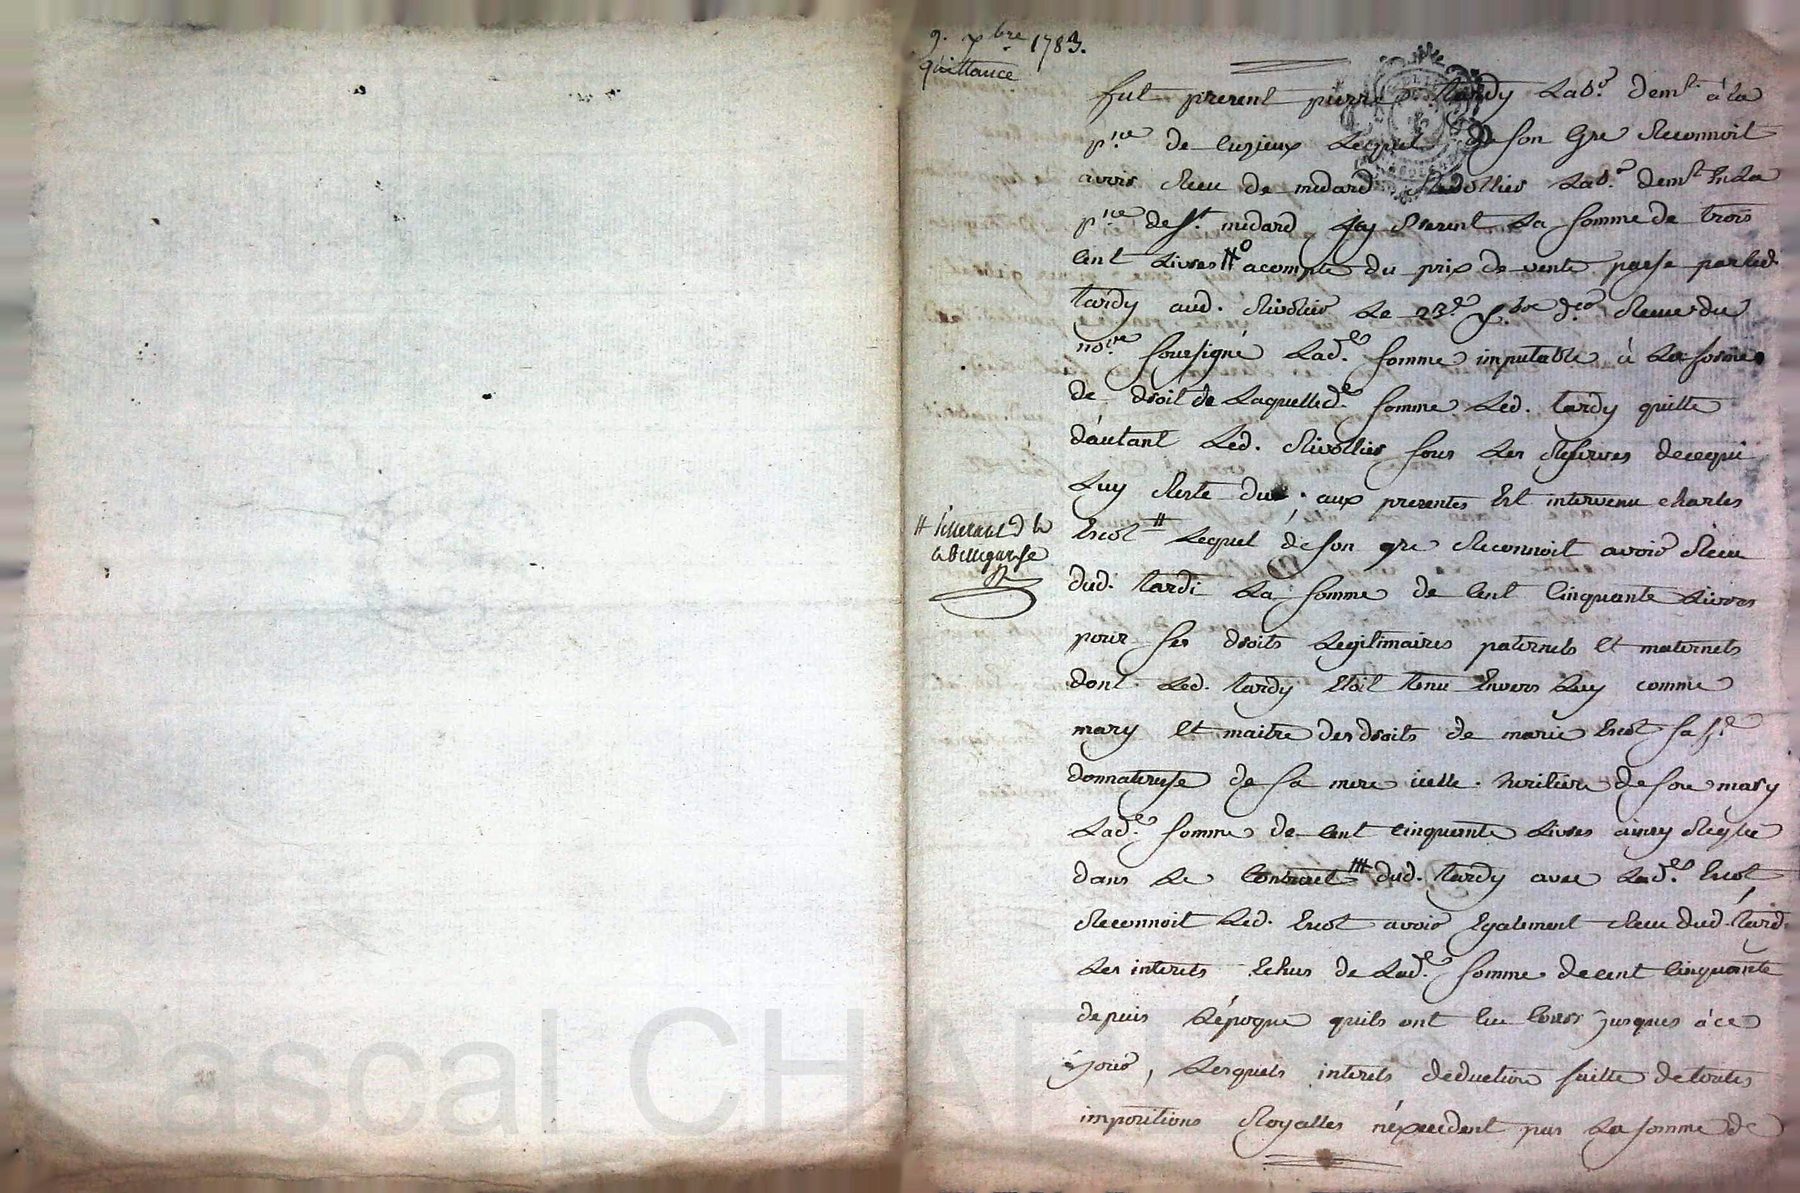 9. xbre 1783.
quittance
fut present pierre tardy Lab.r dem.t à la
p.sse de Cuzieux Lequel de son Gre Reconnoit
avoir Reçu de médard Rivollier Lab.r dem.t En La
p.sse de S.t médard Icy present La somme de trois
Cent Livres a compte du prix de vente passé par led.
tardy aud. Rivolier Le 23.e der Reçue du
no.re soussigné Lad.e somme imputable à La forme
de droit de Laquelle d.e somme Led. tardy quitte
dautant Led. Rivollier sous Les Reserves de ce qui
Luy Reste du. aux presentes Est intervenu charles
Escot # Lequel de son gré Reconnoit avoir Reçu
# tisserant d
la Bellegarde
dud. tardi La somme de Cent Cinquante Livres
pour ses droits Legitimaires paternels Et maternels
dont Led. tardy Etoit tenu Envers Luy comme
mary Et maitre des droits de marie Escot sa f.e
donnateresse de sa mere icelle heritiere de son mary
Lad.e somme de Cent Cinquante Livres ainsy Reglée
dans Le Contract dud. tardy avec Lad.e Escot
Reconnoit Led. Escot avoir Egalement Reçu dud. tard.
Les interets Echus de Lad.e somme de cent Cinquante
depuis L'époque quils ont Eu Cours jusques à ce
jour, Lesquels interets deduction faitte de toutes
impositions Royalles n'éxcedent pas La somme de
Pascal CHAR